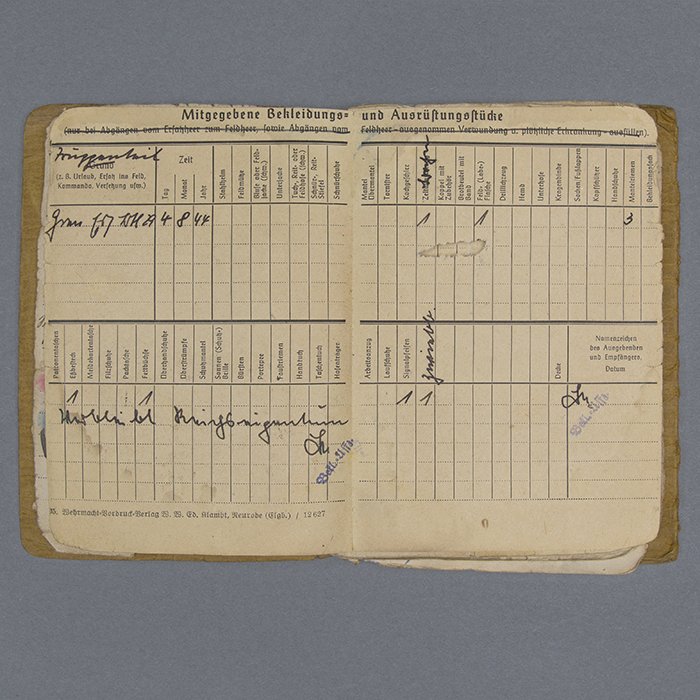 Mitgegebene Bekleidungs- und Ausrüstungsstücke
(nur bei Abgängen vom Ersatzheer zum Feldheer, sowie Abgängen vom Feldheer - ausgenommen Verwundung u. plötzliche Erkrankung - ausfüllen).
Truppenteil
Grund
(z. B. Urlaub, Ersatz ins Feld,
Kommando, Versetzung usw.)
Zeit
Tag
Monat
Jahr
Stahlhelm
Feldmütze
Bluse oder Feld-
jacke (schw.)
Unterjacke
Tuch-, Reit- oder
Feldhose (schw.)
Schnür-, Reit-
Stiefel
Schnürschuhe
Mantel
Übermantel
Tornister
Kochgeschirr
Koppel mit
Zubehör
Brotbeutel mit
Band
Feld-(Labe-)
Flasche
Drillichzeug
Hemd
Unterhose
Kragenbinde
Socken Fußlappen
Kopfschützer
Handschuhe
Mantelriemen
Bekleidungssack
Gren 4 8 44
1 1 3
Patronentaschen
Eßbesteck
Meldekartentasche
Filzschuhe
Packtasche
Fettbüchse
Überhandschuhe
Überstrümpfe
Schutzmantel
Sonnen-(Schutz-)
Brille
Bürsten
Portepee
Faustriemen
Handtuch
Taschentuch
Hosenträger
Arbeitsanzug
Laufschuhe
Signalpfeifen
Decke
Namenzeichen
des Ausgebenden
und Empfängers,
Datum
1 1 1 1
Verbleibt Reichseigentum
W. W. Ed. Klambt, Neurode (Eulg.) / 12627